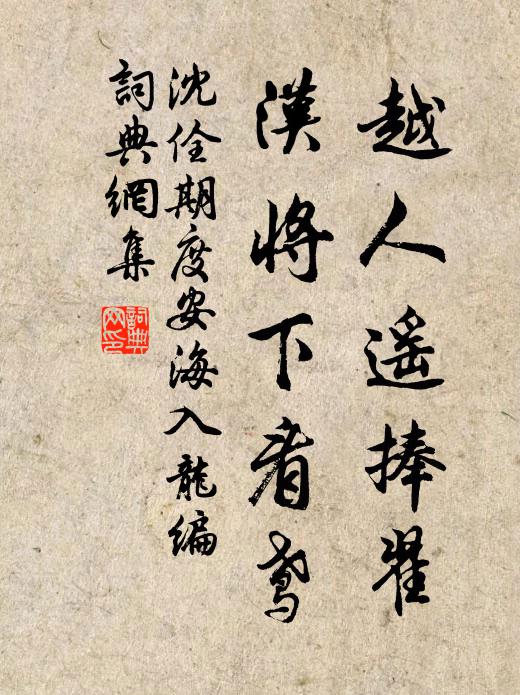 越人遥捧翟
漢將下看鳶
沈佺期度安海入龍編
詞典網集
詞典网印